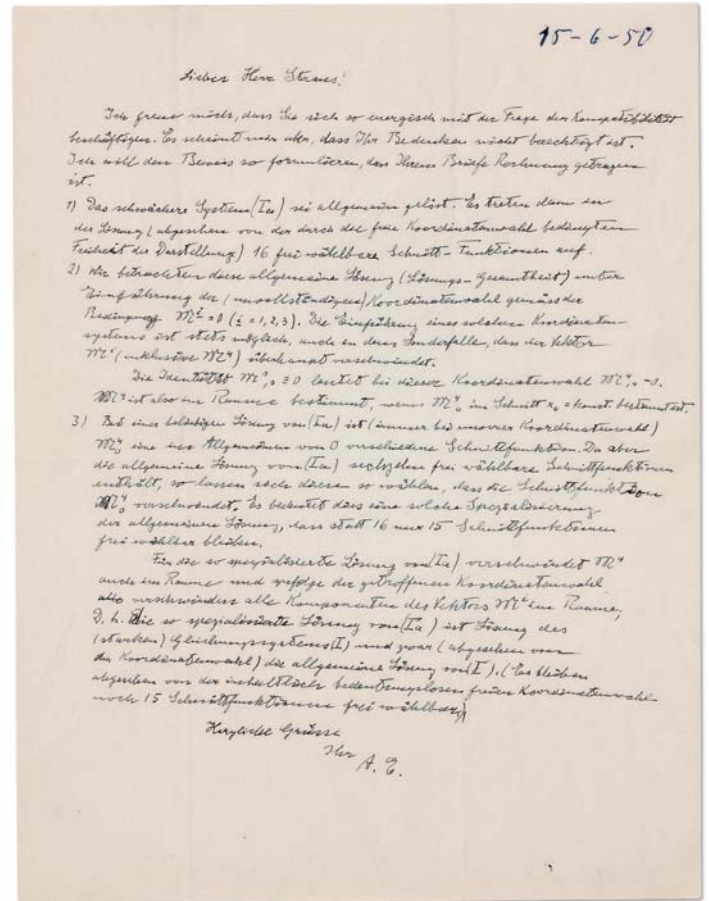 15-6-50
Lieber Herr Straus!
Ich freue mich, dass Sie sich so energisch mit der Frage der Kompatibilität
beschäftigen. Es scheint mir aber, dass Ihr Bedenken nicht berechtigt ist.
Ich will den Beweis so formulieren, dass Ihrem Briefe Rechnung getragen
ist.
1) Das schwächere System (Ia) sei allgemein gelöst. Es treten dann in
der Lösung (abgesehen von der durch die freie Koordinatenwahl bedingten
Freiheit der Darstellung) 16 frei wählbare Schnitt-Funktionen auf.
2) Wir betrachten diese allgemeine Lösung (Lösungs-Gesamtheit) unter
Einführung der (unvollständigen) Koordinatenwahl gemäss der
Bedingung 𝔐^i = 0 (i = 1, 2, 3). Die Einführung eines solchen Koordinaten-
systems ist stets möglich, auch in dem Sonderfalle, dass der Vektor
𝔐^s (inklusive 𝔐^4) überhaupt verschwindet.
Die Identität 𝔐^s,s ≡ 0 lautet bei dieser Koordinatenwahl 𝔐^4,4 = 0.
𝔐^4 ist also im Raume bestimmt, wenn 𝔐^4 im Schnitt x4 = konst. bestimmt ist.
3) Bei einer beliebigen Lösung von (Ia) ist (immer bei unserer Koordinatenwahl)
𝔐^4 eine im Allgemeinen von 0 verschiedene Schnittfunktion. Da aber
die allgemeine Lösung von (Ia) sechzehn frei wählbare Schnittfunktionen
enthält, so lassen sich diese so wählen, dass die Schnittfunktion
𝔐^4 verschwindet. Es bedeutet dies eine solche Spezialisierung
der allgemeinen Lösung, dass statt 16 nur 15 Schnittfunktionen
frei wählbar bleiben.
Für die so spezialisierte Lösung von (Ia) verschwindet 𝔐^4
auch im Raume und zufolge der getroffenen Koordinatenwahl
verschwinden alle Komponenten des Vektors 𝔐^i im Raume,
D. h. Die so spezialisierte Lösung von (Ia) ist Lösung des
(starken) Gleichungssystems (I) und zwar (abgesehen von
der Koordinatenwahl) die allgemeine Lösung von (I). (Es bleiben
abgesehen von der inhaltlich bedeutungslosen freien Koordinatenwahl
noch 15 Schnittfunktionen frei wählbar)
Herzliche Grüsse
Ihr
A. E.